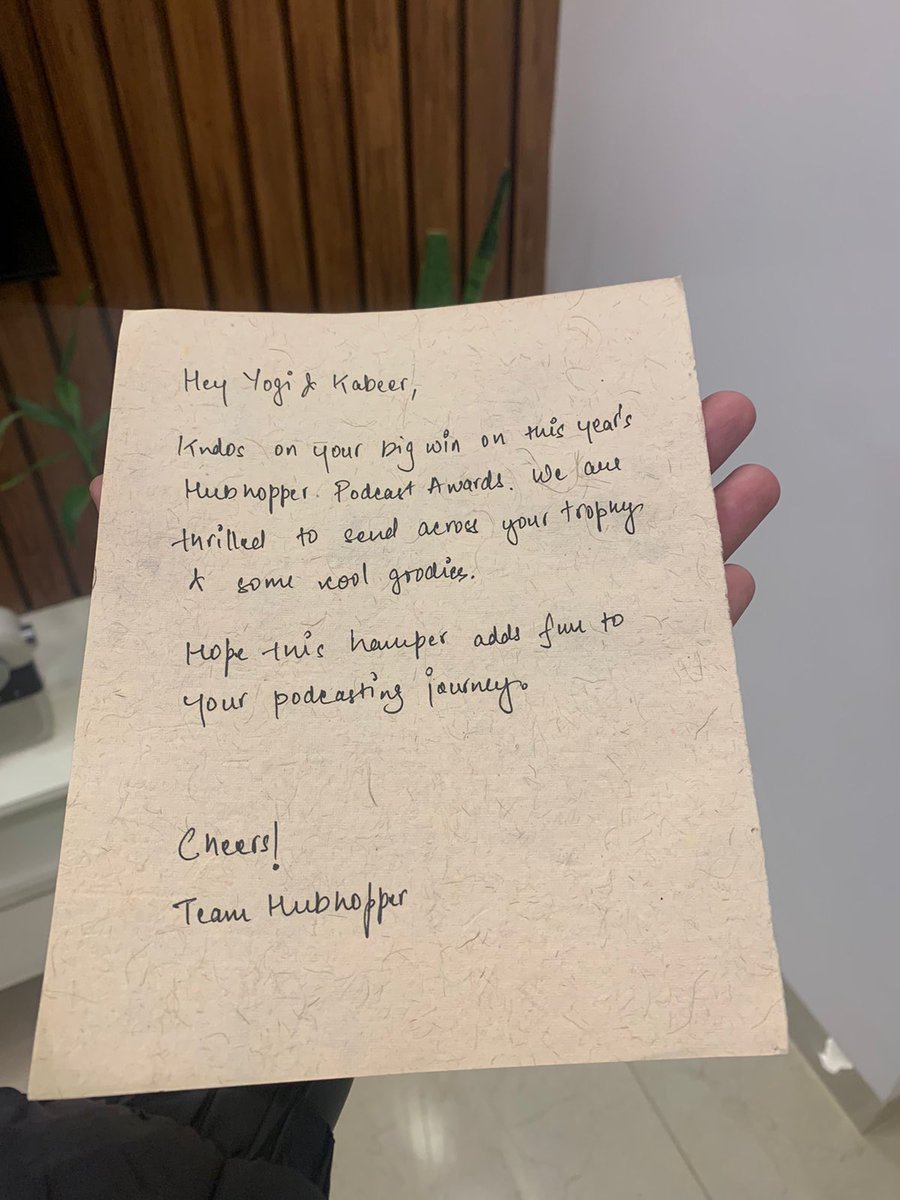 Hey Yogi & Kabeer,
Kudos on your big win on this year's
Hubhopper. Podcast Awards. We are
thrilled to send across your trophy
& some kool goodies.
Hope this hamper adds fun to
your podcasting journey.
Cheers!
Team Hubhopper